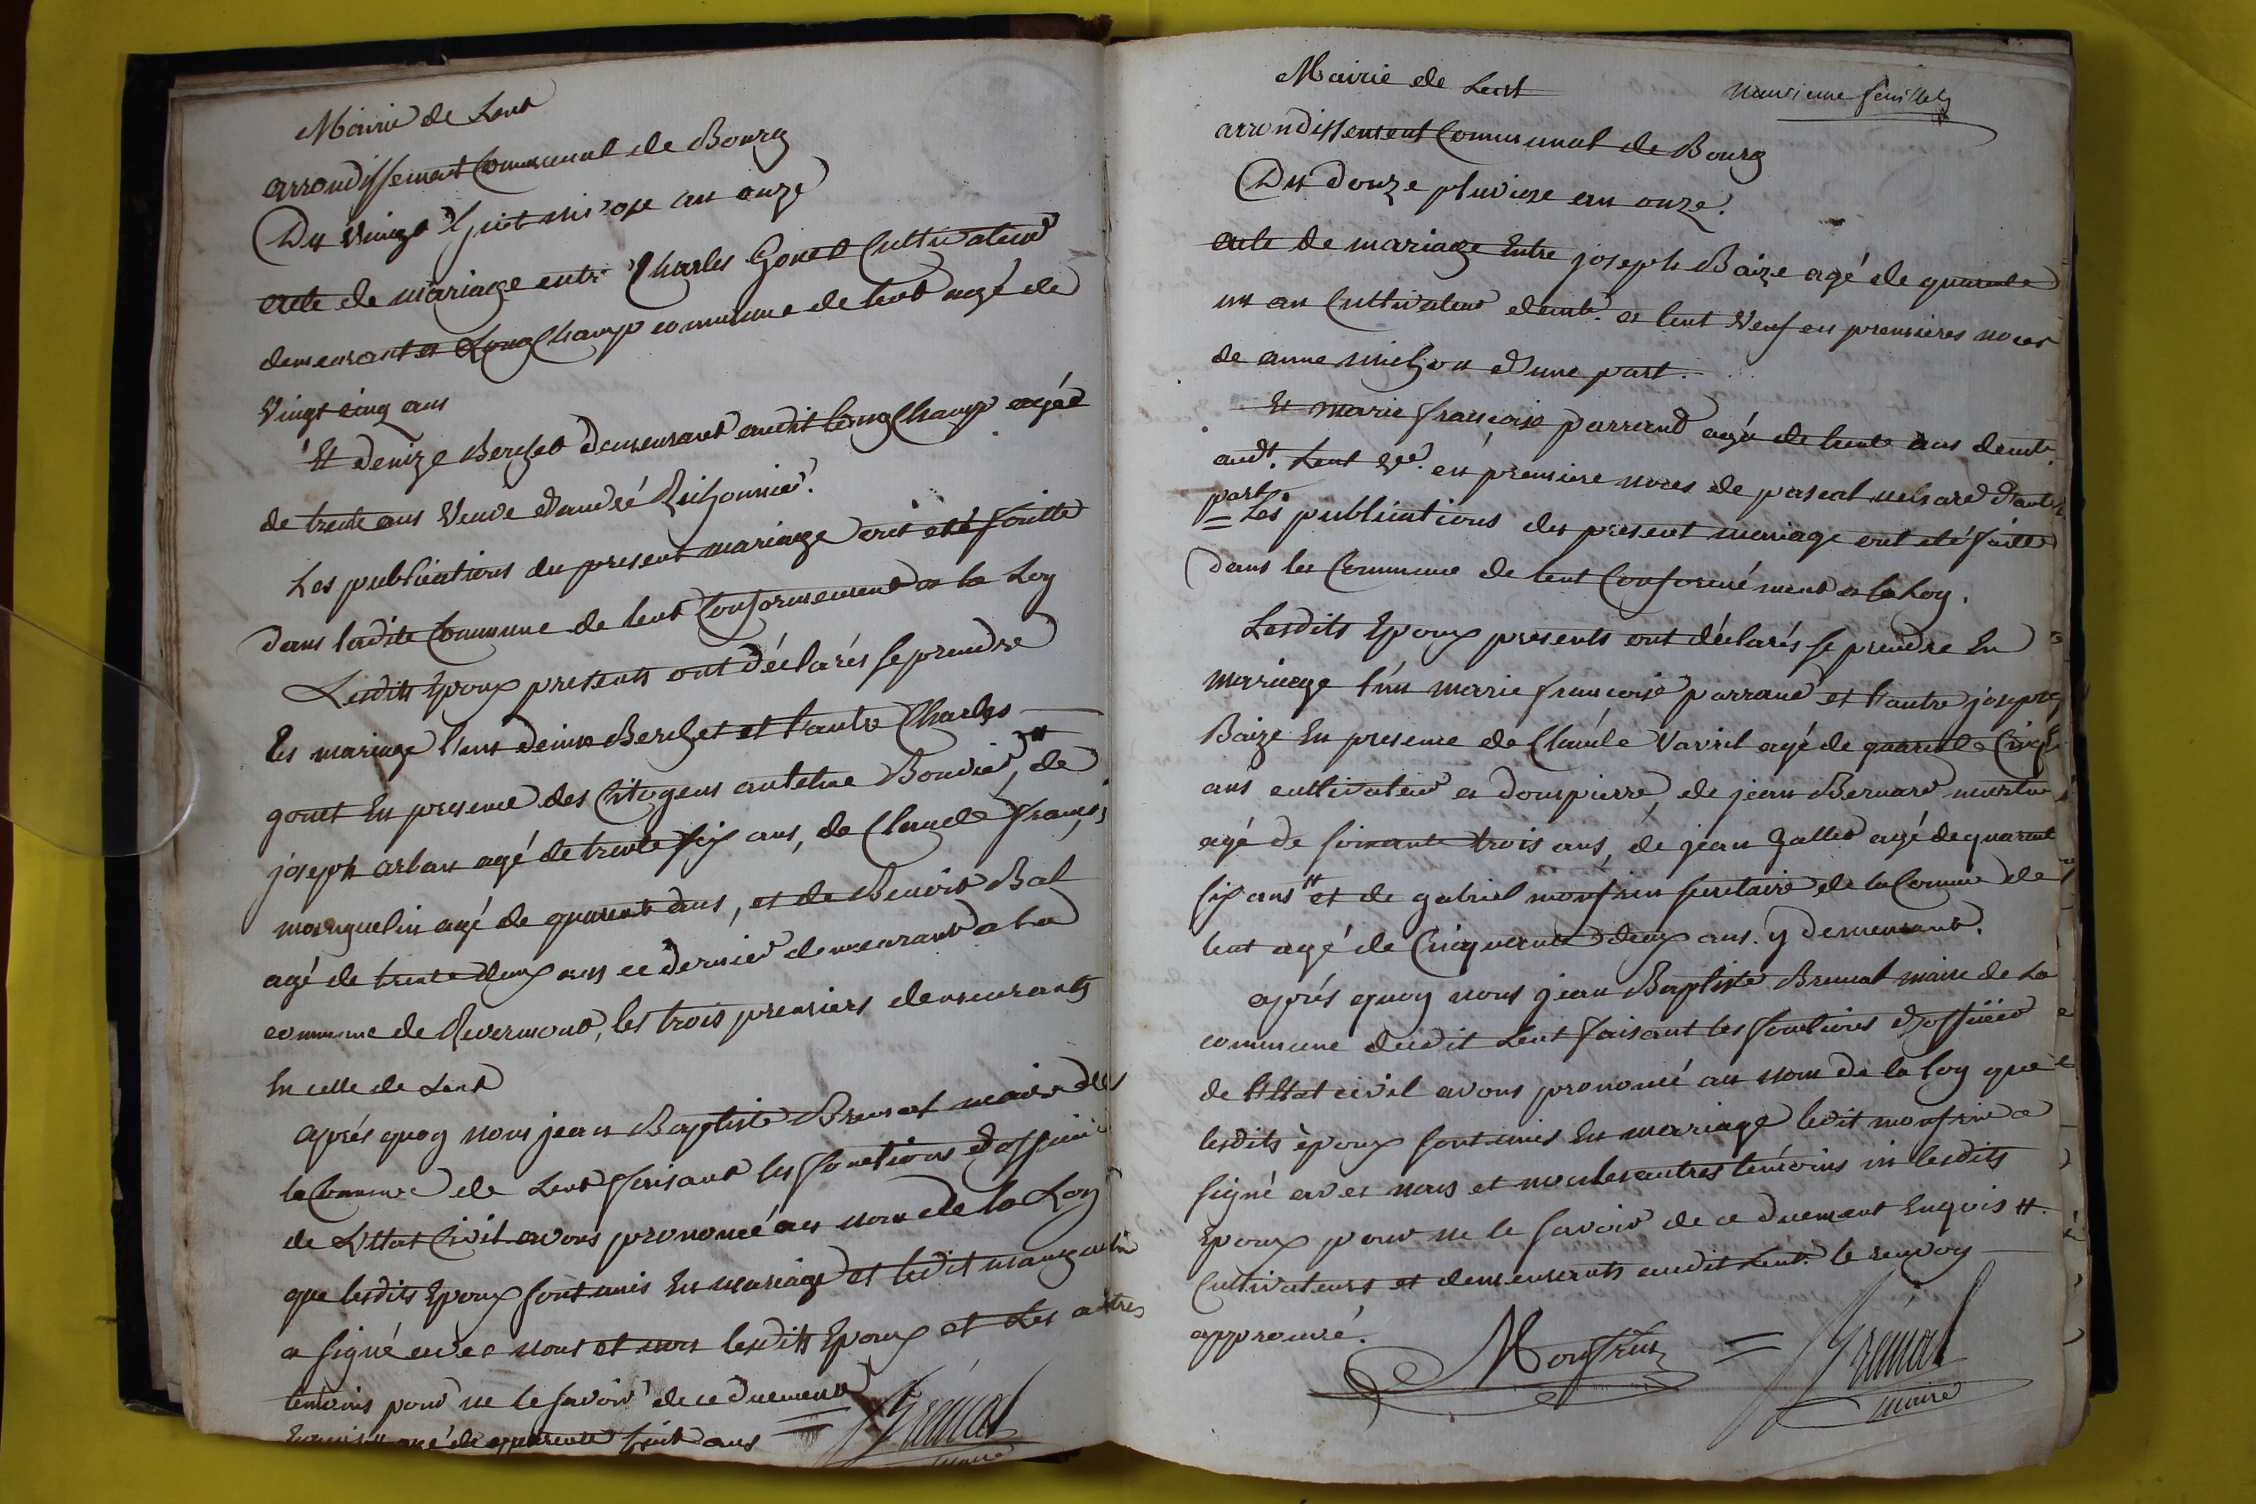 Mairie de Lent
arrondissement Communal de Bourg
Du Vingt huit nivose an onze
acte de mariage entre Charles Gonet Cultivateur
demeurant a Longchamp commune de lent agé de
Vingt cinq ans
Et denize Berchet demeurant audit longchamp agée
de trente ans Veuve d'andré
Les publications du present mariage ont eté faitte
dans ladite Commune de lent Conformement a la Loy
Lesdits Epoux presents ont déclarés se prendre
En mariage l'un denize Berchet et l'autre Charles
gonet En presence des Citoyens antelme Bouvier, # de
joseph arban agé de trente six ans, de Claude françois
manguelin agé de quarante ans, et de Benoit Bal
agé de trente deux ans ce dernier demeurant a la
commune de Revermont, les trois premiers demeurants
En celle de Lent
aprés quoy nous jean Baptiste Brenat maire de
la Commune de Lent faisant les fonctions d'officier
de L'Etat Civil avons prononcé au nom de la Loy
que lesdits Epoux sont unis En mariage et ledit manguelin
a signé avec nous et non lesdits Epoux et Les autres
temoins pour ne le savoir de ce duement
Enquis # agé de quarente huit ans
maire
Mairie de Lent
neuvieme feuillet
arrondissement Communal de Bourg
Du douze pluviose an onze.
acte de mariage Entre joseph Baize agé de quarante
un an Cultivateur demt. a lent Veuf en premieres noces
de anne michon d'une part.
Et marie françoise parrand agée de trente ans demte.
audt. Lent Vve. en premiere noces de pascal d'autre
part
= Les publications du present mariage ont eté faitte
dans la Commune de lent Conformément a la Loy.
Lesdits Epoux presents ont déclarés se prendre En
mariage l'un marie françoise parrand et l'autre joseph
Baize En presence de Claude Vavril agé de quarante Cinq
ans cultivateur a dompierre, de jean Bernard martin
agé de soixante trois ans, de jean gallet agé de quarante
six ans # et de gabriel monfrin secretaire de la Comune de
lent agé de Cinquante deux ans. y demeurant.
aprés quoy nous jean Baptiste Brenat maire de la
commune dudit Lent faisant les fonctions d'officier
de l'Etat civil avons prononcé au nom de la loy que
lesdits époux sont unis En mariage ledit monfrin a
signé avec nous et non les autres temoins ni lesdits
Epoux pour ne le savoir de ce duement Enquis #
Cultivateurs et demeurants audit Lent. le renvoy
approuvé.
Monfrin = Brenat
maire